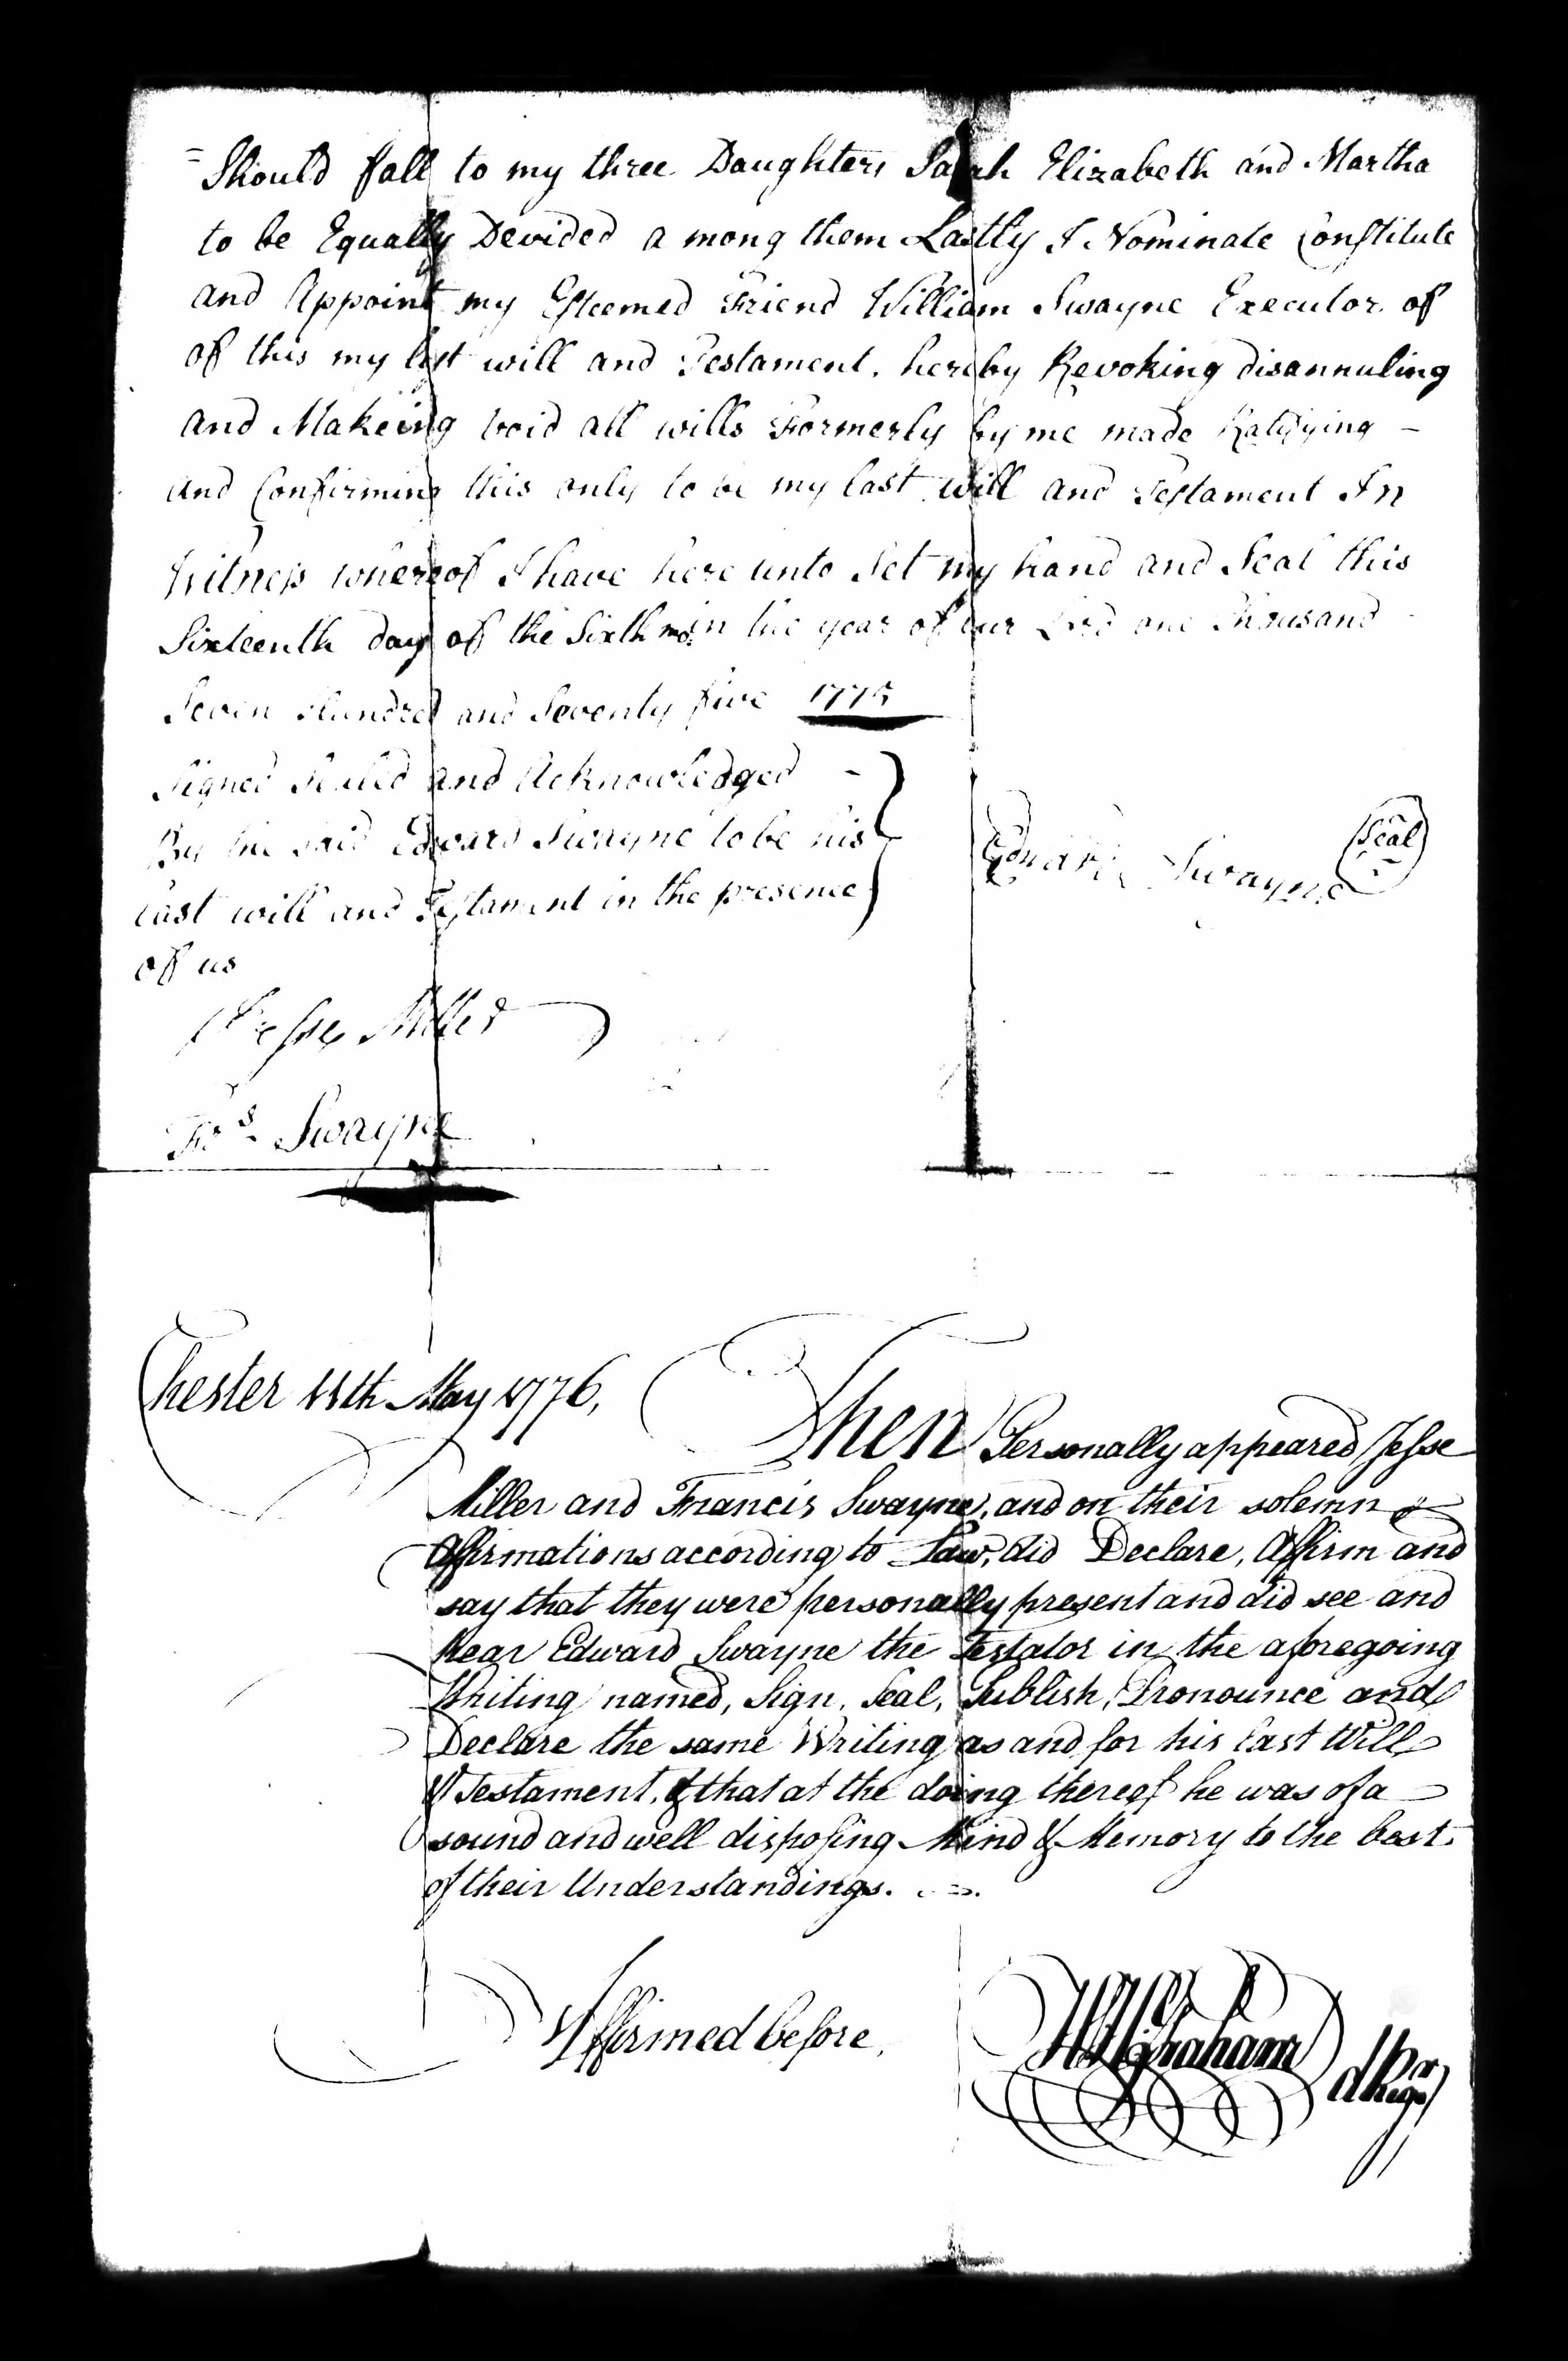 = Should fall to my three Daughters Sarah Elizabeth and Martha
to be Equally Devided a mong them Lastly I Nominate Constitute
and Appoint my Esteemed Friend William Swayne Executor of
of this my last will and Testament. hereby Revoking disannuling
and Makeing void all wills Formerly by me made Ratifying –
and Confirming this only to be my last will and Testament In
Witness whereof I have here unto Set my hand and Seal this
Sixteenth day of the Sixth mo. in the year of our Lord one Thousand
Seven Hundred and Seventy five 1775
Signed Sealed and Acknowledged –
By the said Edward Swayne to be his
last will and Testament in the presence
of us
Edward Swayne (Seal)
Jesse Miller
Frs. Swayne
Chester 11th May 1776,
Then Personally appeared Jesse
Miller and Francis Swayne, and on their solemn
Affirmations according to Law, did Declare, Affirm and
say that they were personally present and did see and
hear Edward Swayne the Testator in the aforegoing
Writing named, Sign, Seal, Publish, Pronounce and
Declare the same Writing as and for his Last Will
& Testament, & that at the doing thereof he was of a
sound and well disposing Mind & Memory to the best
of their Understandings.
Affirmed before,
Graham